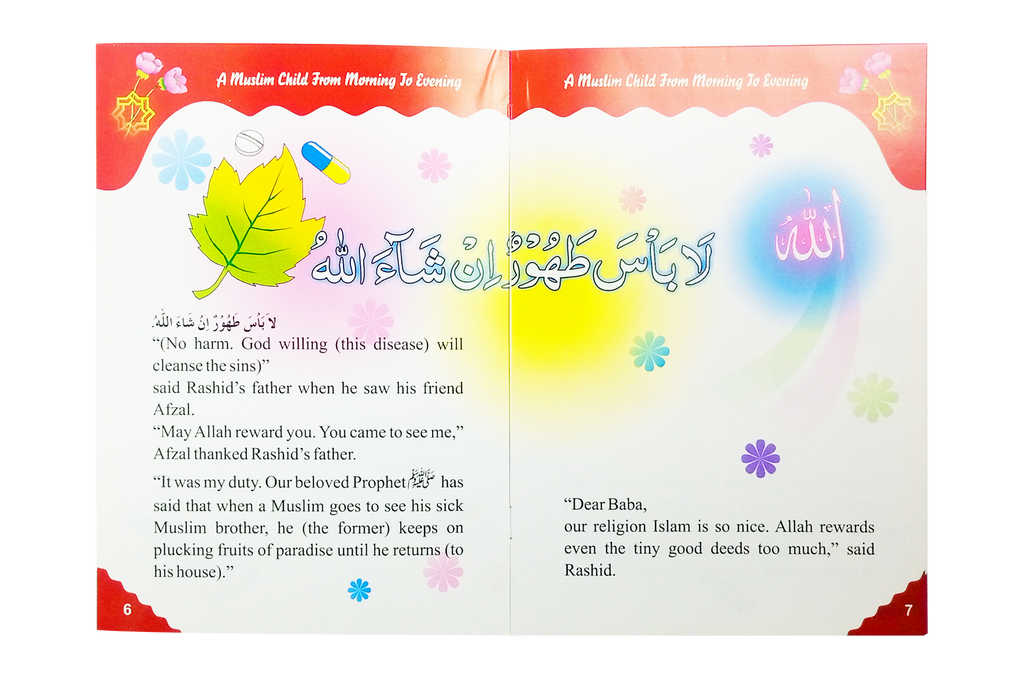 A Muslim Child From Morning To Evening
لَا بَأْسَ طَهُوْرٌ اِنْ شَآءَ اللّٰهُ
لَا بَأْسَ طَهُوْرٌ اِنْ شَاءَ اللّٰهُ.
“(No harm. God willing (this disease) will
cleanse the sins)”
said Rashid’s father when he saw his friend
Afzal.
“May Allah reward you. You came to see me,”
Afzal thanked Rashid’s father.
“It was my duty. Our beloved Prophet ﷺ has
said that when a Muslim goes to see his sick
Muslim brother, he (the former) keeps on
plucking fruits of paradise until he returns (to
his house).”
6
A Muslim Child From Morning To Evening
اللّٰهُ
“Dear Baba,
our religion Islam is so nice. Allah rewards
even the tiny good deeds too much,” said
Rashid.
7